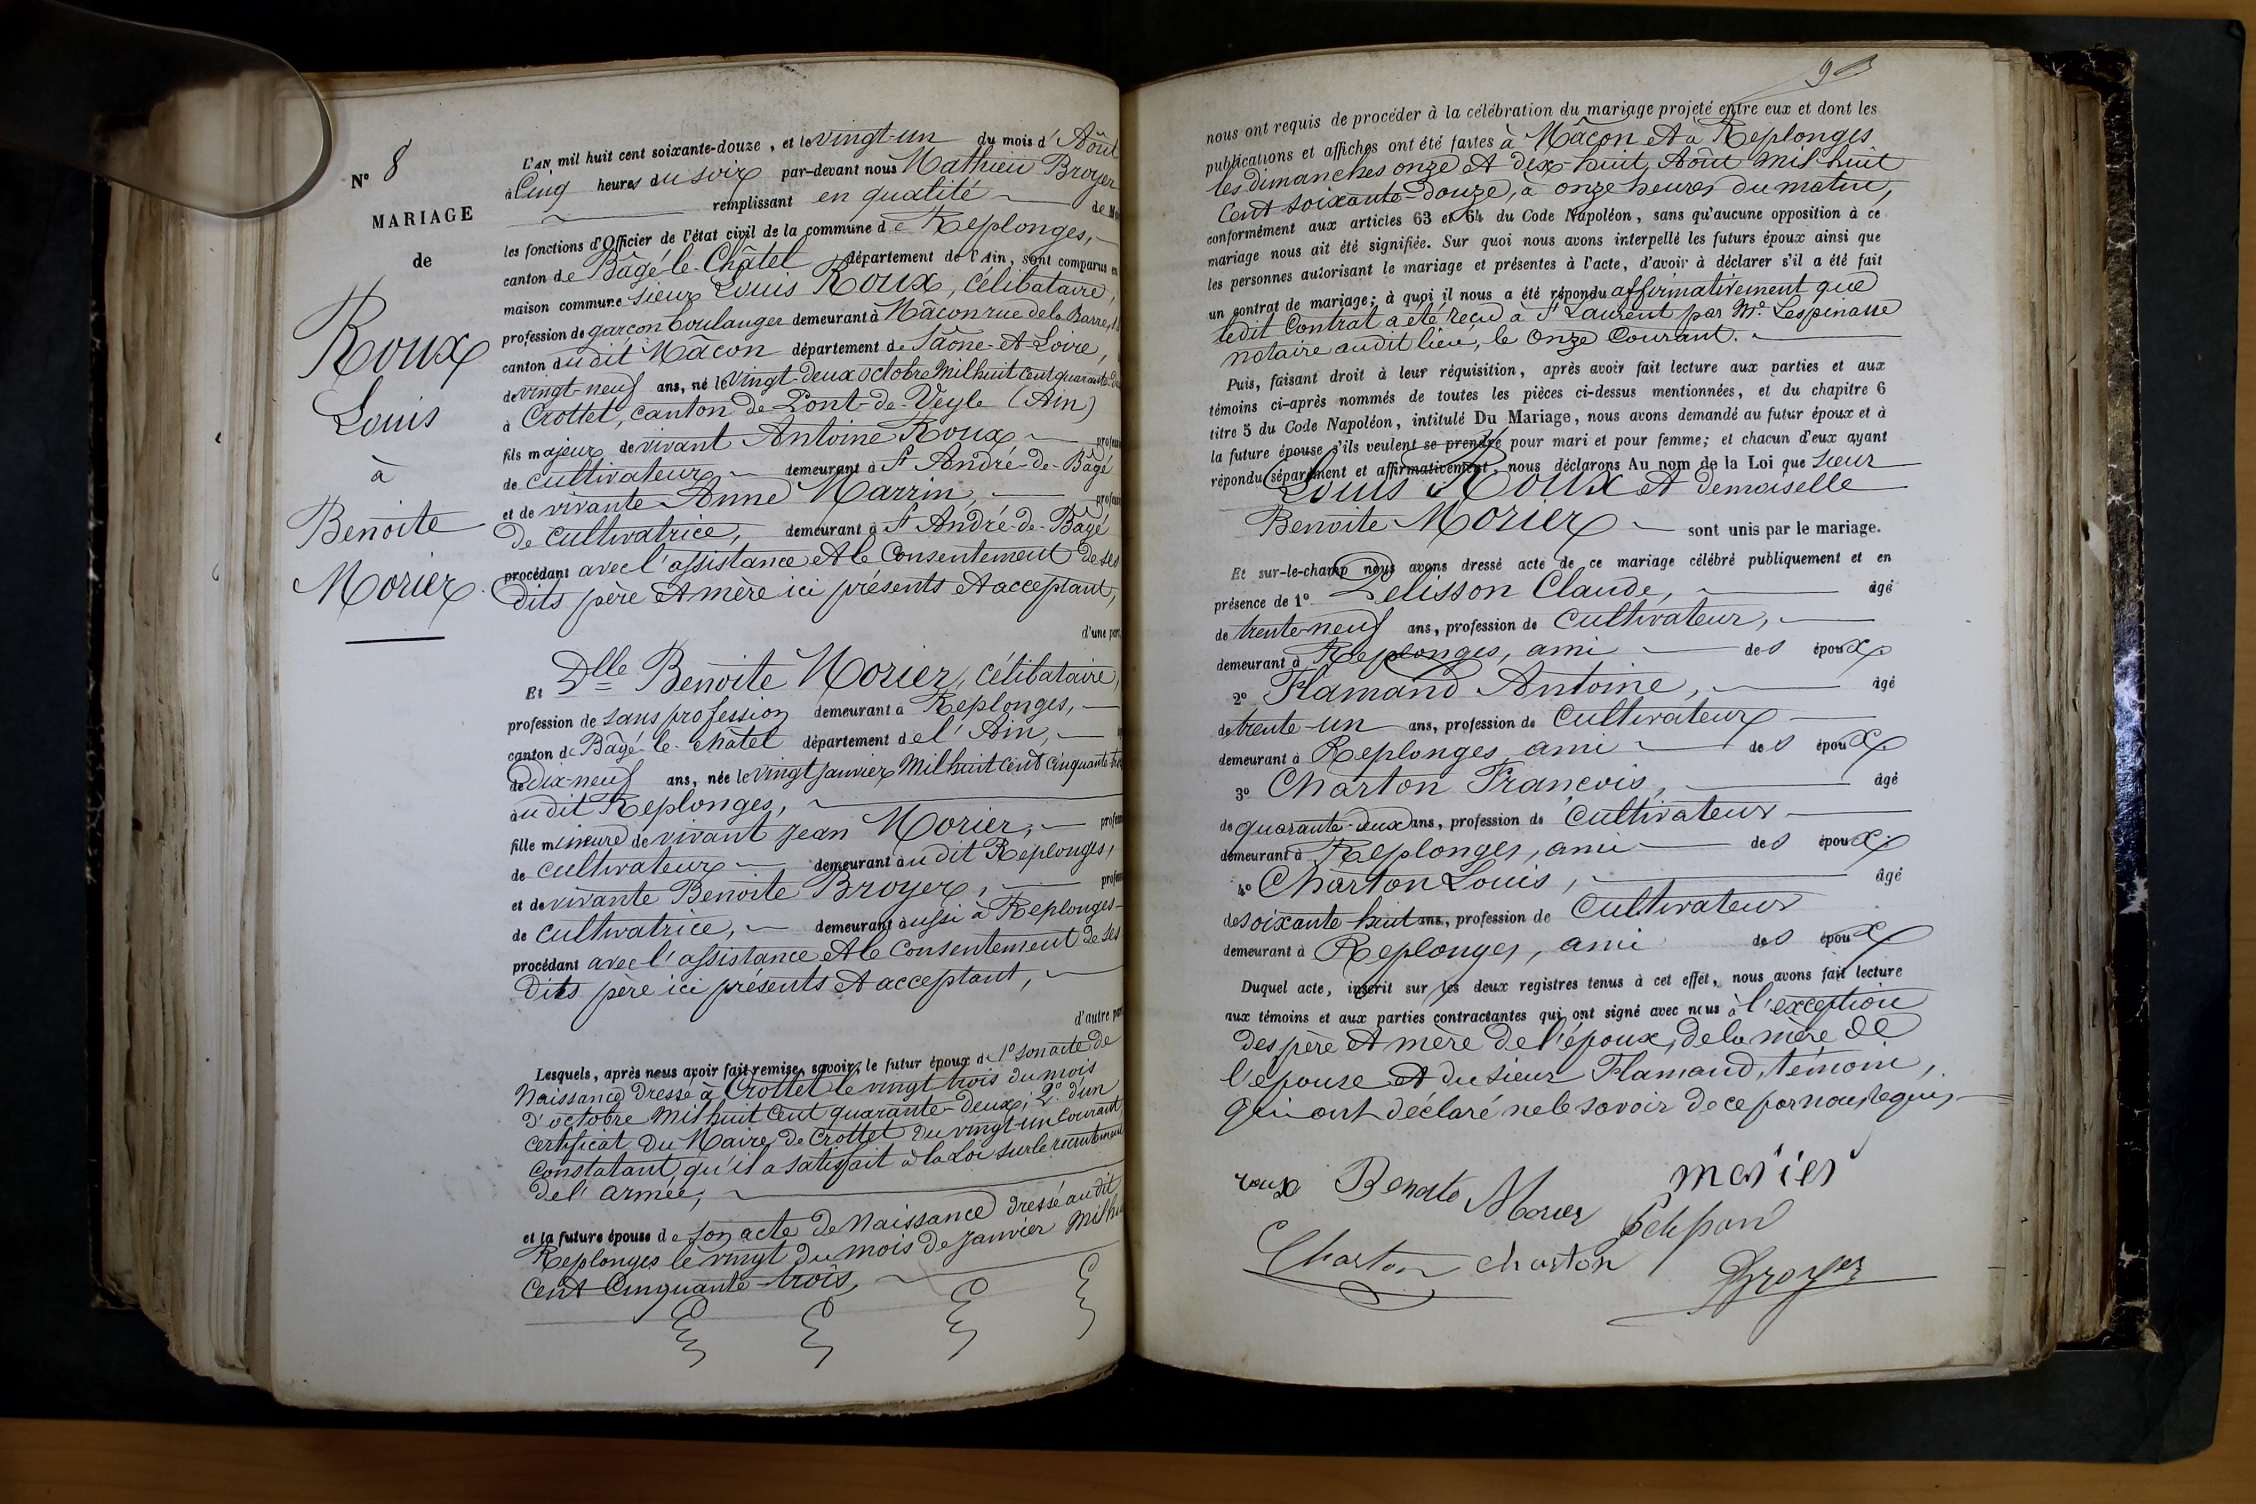 N° 8
MARIAGE
de
Roux
Louis
à
Benoite
Morier.
L'an mil huit cent soixante-douze, et le vingt-un du mois d'Août
à Cinq heures du soir par-devant nous Mathieu Broyer
remplissant en qualité de
les fonctions d'Officier de l'état civil de la commune de Replonges,
canton de Bâgé-le-Châtel département de l'Ain, sont comparus en
maison commune sieur Louis Roux, célibataire,
profession de garçon boulanger demeurant à Mâcon rue de la Barre,
canton du dit Mâcon département de Saône-et-Loire,
de vingt-neuf ans, né le vingt-deux octobre mil huit cent quarante-
à Crottet, canton de Pont-de-Veyle (Ain)
fils majeur de vivant Antoine Roux
de cultivateur demeurant à St André-de-Bâgé
et de vivante Anne Marrin
de cultivatrice, demeurant à St André-de-Bâgé
procédant avec l'assistance et le consentement de ses
dits père et mère ici présents et acceptant,
d'une
Et Dlle Benoite Morier, célibataire,
profession de sans profession demeurant à Replonges,
canton de Bâgé-le-châtel département de l'Ain,
de dix-neuf ans, née le vingt janvier mil huit cent cinquante-
au dit Replonges,
fille mineure de vivant Jean Morier,
de cultivateur demeurant au dit Replonges,
et de vivante Benoite Broyer,
de cultivatrice, demeurant aussi à Replonges
procédant avec l'assistance et le consentement de ses
dits père ici présents et acceptant,
d'autre
Lesquels, après nous avoir fait remise, savoir; le futur époux de 1° son acte de
Naissance dressé à Crottet le vingt trois du mois
d'octobre mil huit cent quarante-deux; 2° d'un
certificat du Maire de Crottet du vingt-un courant,
constatant qu'il a satisfait à la Loi sur le recrutement
de l'armée,
et la future épouse de son acte de Naissance dressé au dit
Replonges le vingt du mois de janvier mil
cent cinquante-trois,
nous ont requis de procéder à la célébration du mariage projeté entre eux et dont les
publications et affiches ont été faites à Mâcon et à Replonges
les dimanches onze et dix-huit Août mil huit
cent soixante-douze, à onze heures du matin,
conformément aux articles 63 et 64 du Code Napoléon, sans qu'aucune opposition à ce
mariage nous ait été signifiée. Sur quoi nous avons interpellé les futurs époux ainsi que
les personnes autorisant le mariage et présentes à l'acte, d'avoir à déclarer s'il a été fait
un contrat de mariage; à quoi il nous a été répondu affirmativement que
ledit Contrat a été reçu à St Laurent par Me. Lespinasse
notaire audit lieu, le onze courant.
Puis, faisant droit à leur réquisition, après avoir fait lecture aux parties et aux
témoins ci-après nommés de toutes les pièces ci-dessus mentionnées, et du chapitre 6
titre 5 du Code Napoléon, intitulé Du Mariage, nous avons demandé au futur époux et à
la future épouse s'ils veulent se prendre pour mari et pour femme; et chacun d'eux ayant
répondu séparément et affirmativement, nous déclarons Au nom de la Loi que sieur
Louis Roux et demoiselle
Benoite Morier sont unis par le mariage.
Et sur-le-champ nous avons dressé acte de ce mariage célébré publiquement et en
présence de 1° Pelisson Claude, âgé
de trente-neuf ans, profession de cultivateur,
demeurant à Replonges, ami des époux
2° Flamand Antoine, âgé
de trente-un ans, profession de cultivateur
demeurant à Replonges ami des époux
3° Charton François, âgé
de quarante-deux ans, profession de cultivateur
demeurant à Replonges, ami des époux
4° Charton Louis, âgé
de soixante-huit ans, profession de cultivateur
demeurant à Replonges, ami des époux
Duquel acte, inscrit sur les deux registres tenus à cet effet, nous avons fait lecture
aux témoins et aux parties contractantes qui ont signé avec nous à l'exception
des père et mère de l'époux, de la mère de
l'épouse et du sieur Flamand, témoin,
qui ont déclaré ne le savoir de ce par nous requis,
roux Benoite Morier morier
Pelisson
Charton charton Broyer